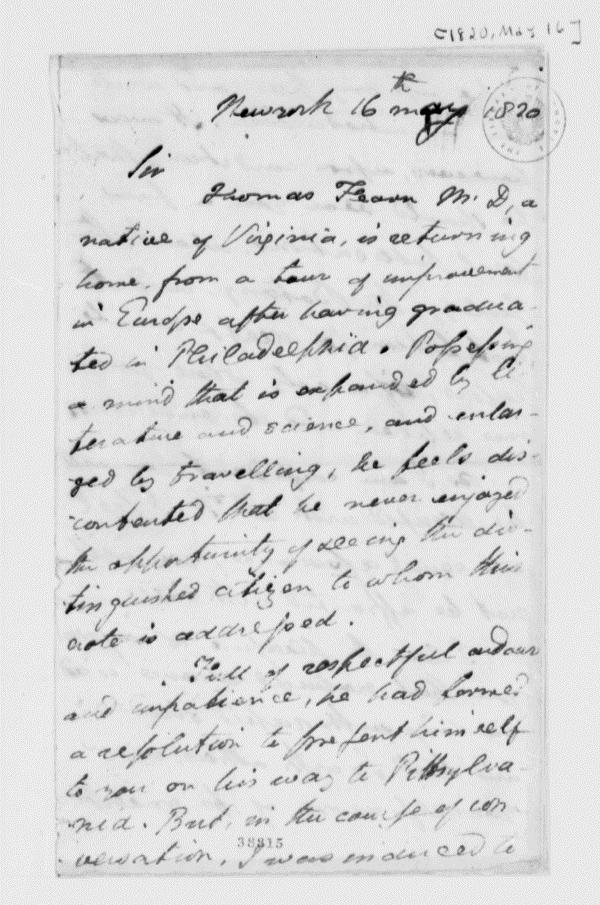 [1820, May 16]
New york 16th may 1820
Sir
Thomas Fearn M. D, a
native of Virginia, is returning
home, from a tour of improvement
in Europe after having gradua-
ted in Philadelphia. Possessing
a mind that is expanded by li
terature and science, and enlar-
ged by travelling, he feels dis-
contented that he never enjoyed
the opportunity of seeing the dis-
tinguished citizen to whom this
note is addressed.
Full of respectful ardour
and impatience, he had formed
a resolution to present himself
to you on his way to Pittsylva-
nia. But, in the course of con
versation, I was induced to
38815